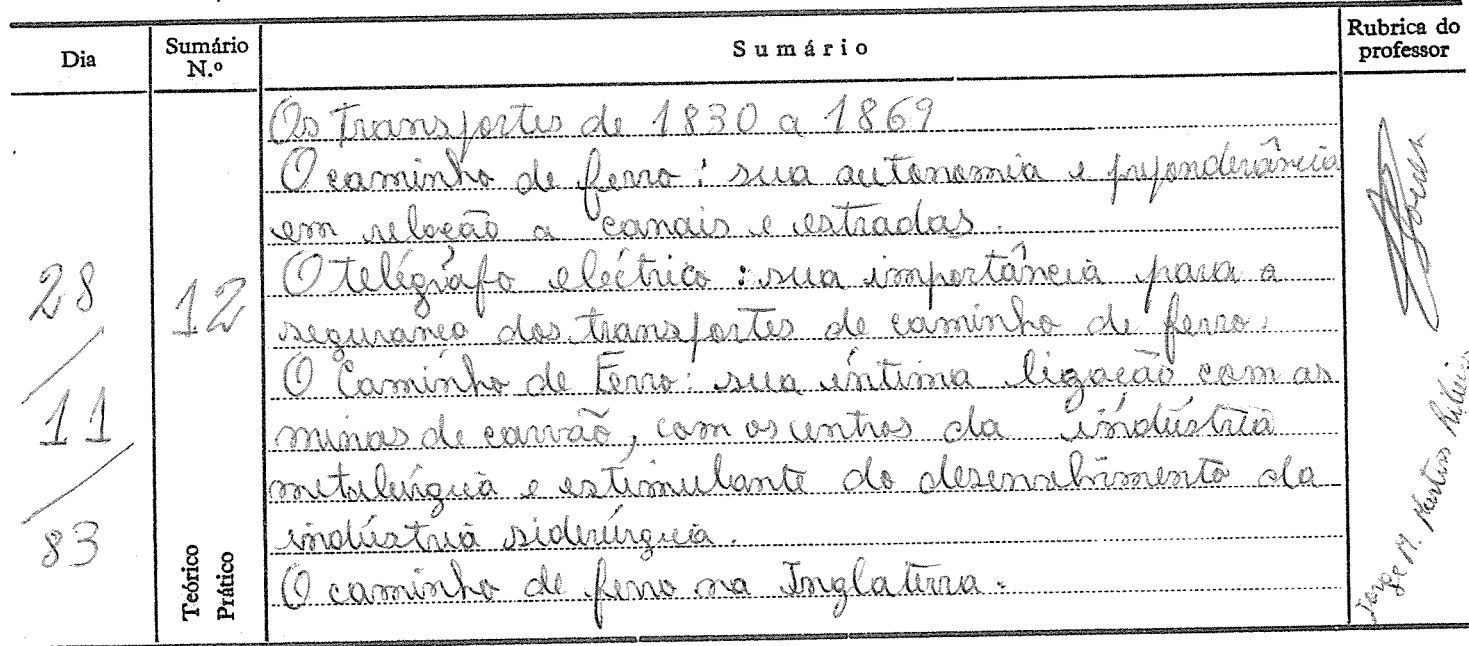 Dia
Sumário
N.º
Sumário
Rubrica do
professor
28
/
11
/
83
12
Teórico
Prático
Os transportes de 1830 a 1869
O caminho de ferro: sua autonomia e preponderância
em relação a canais e estradas.
O telégrafo eléctrico: sua importância para a
segurança dos transportes de caminho de ferro.
O Caminho de Ferro: sua íntima ligação com as
minas de carvão, com os centros da indústria
metalúrgica e estimulante do desenvolvimento da
indústria siderúrgica.
O caminho de ferro na Inglaterra.
Jorge M. Martins Ribeiro